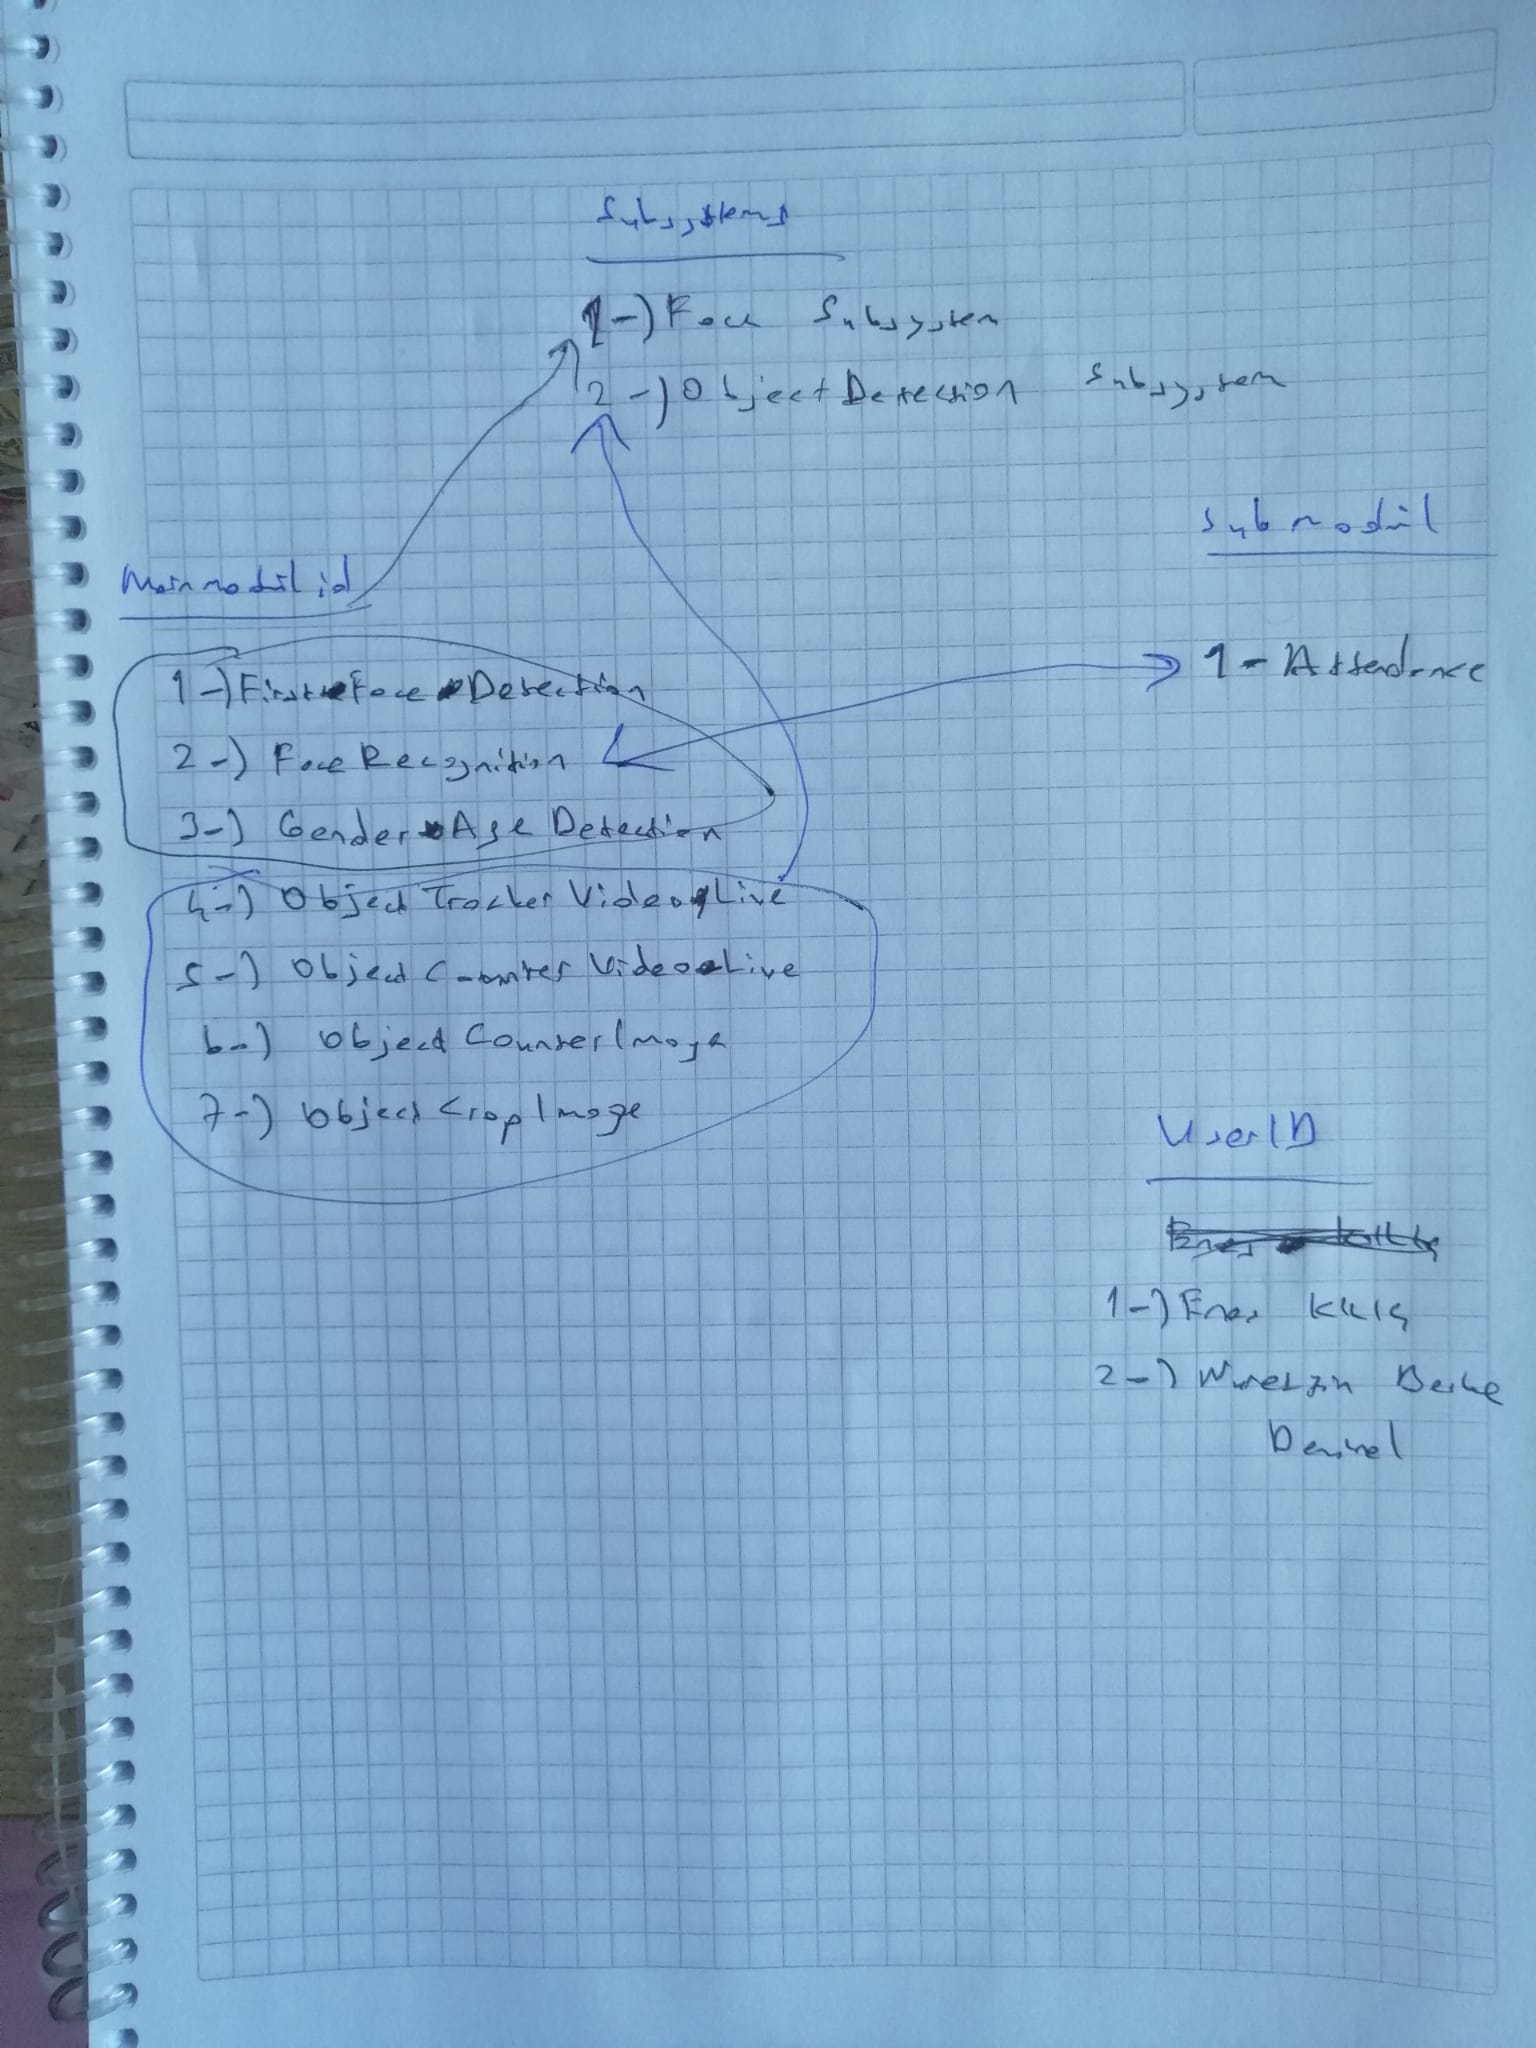 Subsystems
1-) Face Subsystem
2-) Object Detection Subsystem
Submodül
Mainmodül id
1 - Attendence
1-) First Face Detection
2-) Face Recognition
3-) Gender Age Detection
4-) Object Tracker Video Live
5-) Object Counter Video Live
6-) Object Counter Image
7-) Object Crop Image
UserID
1-) Enes Kılıç
2-) Berke
Demirel